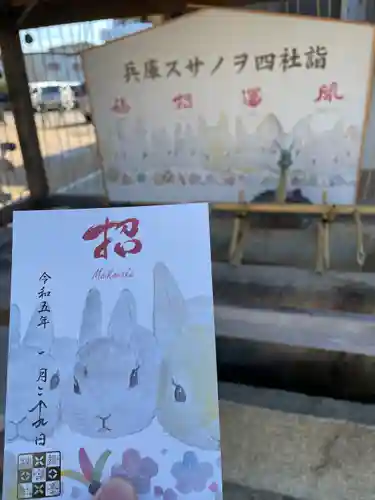 兵庫スサノヲ四社詣
福 招 運 開
招
Maneki
令和五年
一月二十九日